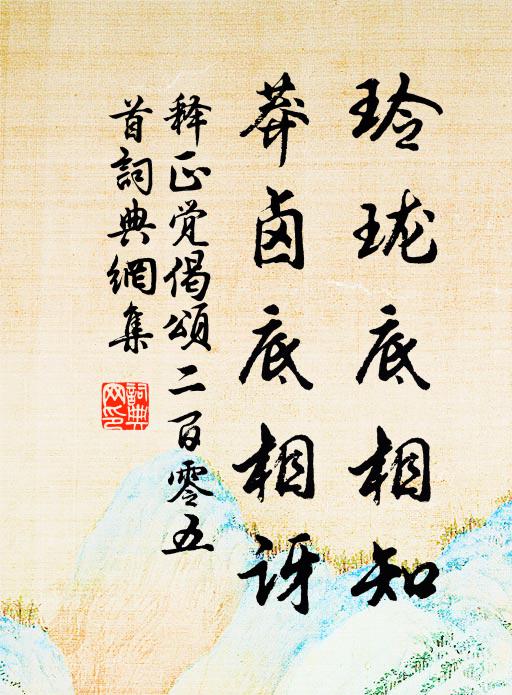 玲珑底相知
莽卤底相讶
释正觉偈颂二百零五
首詞典網集
詞典
网印